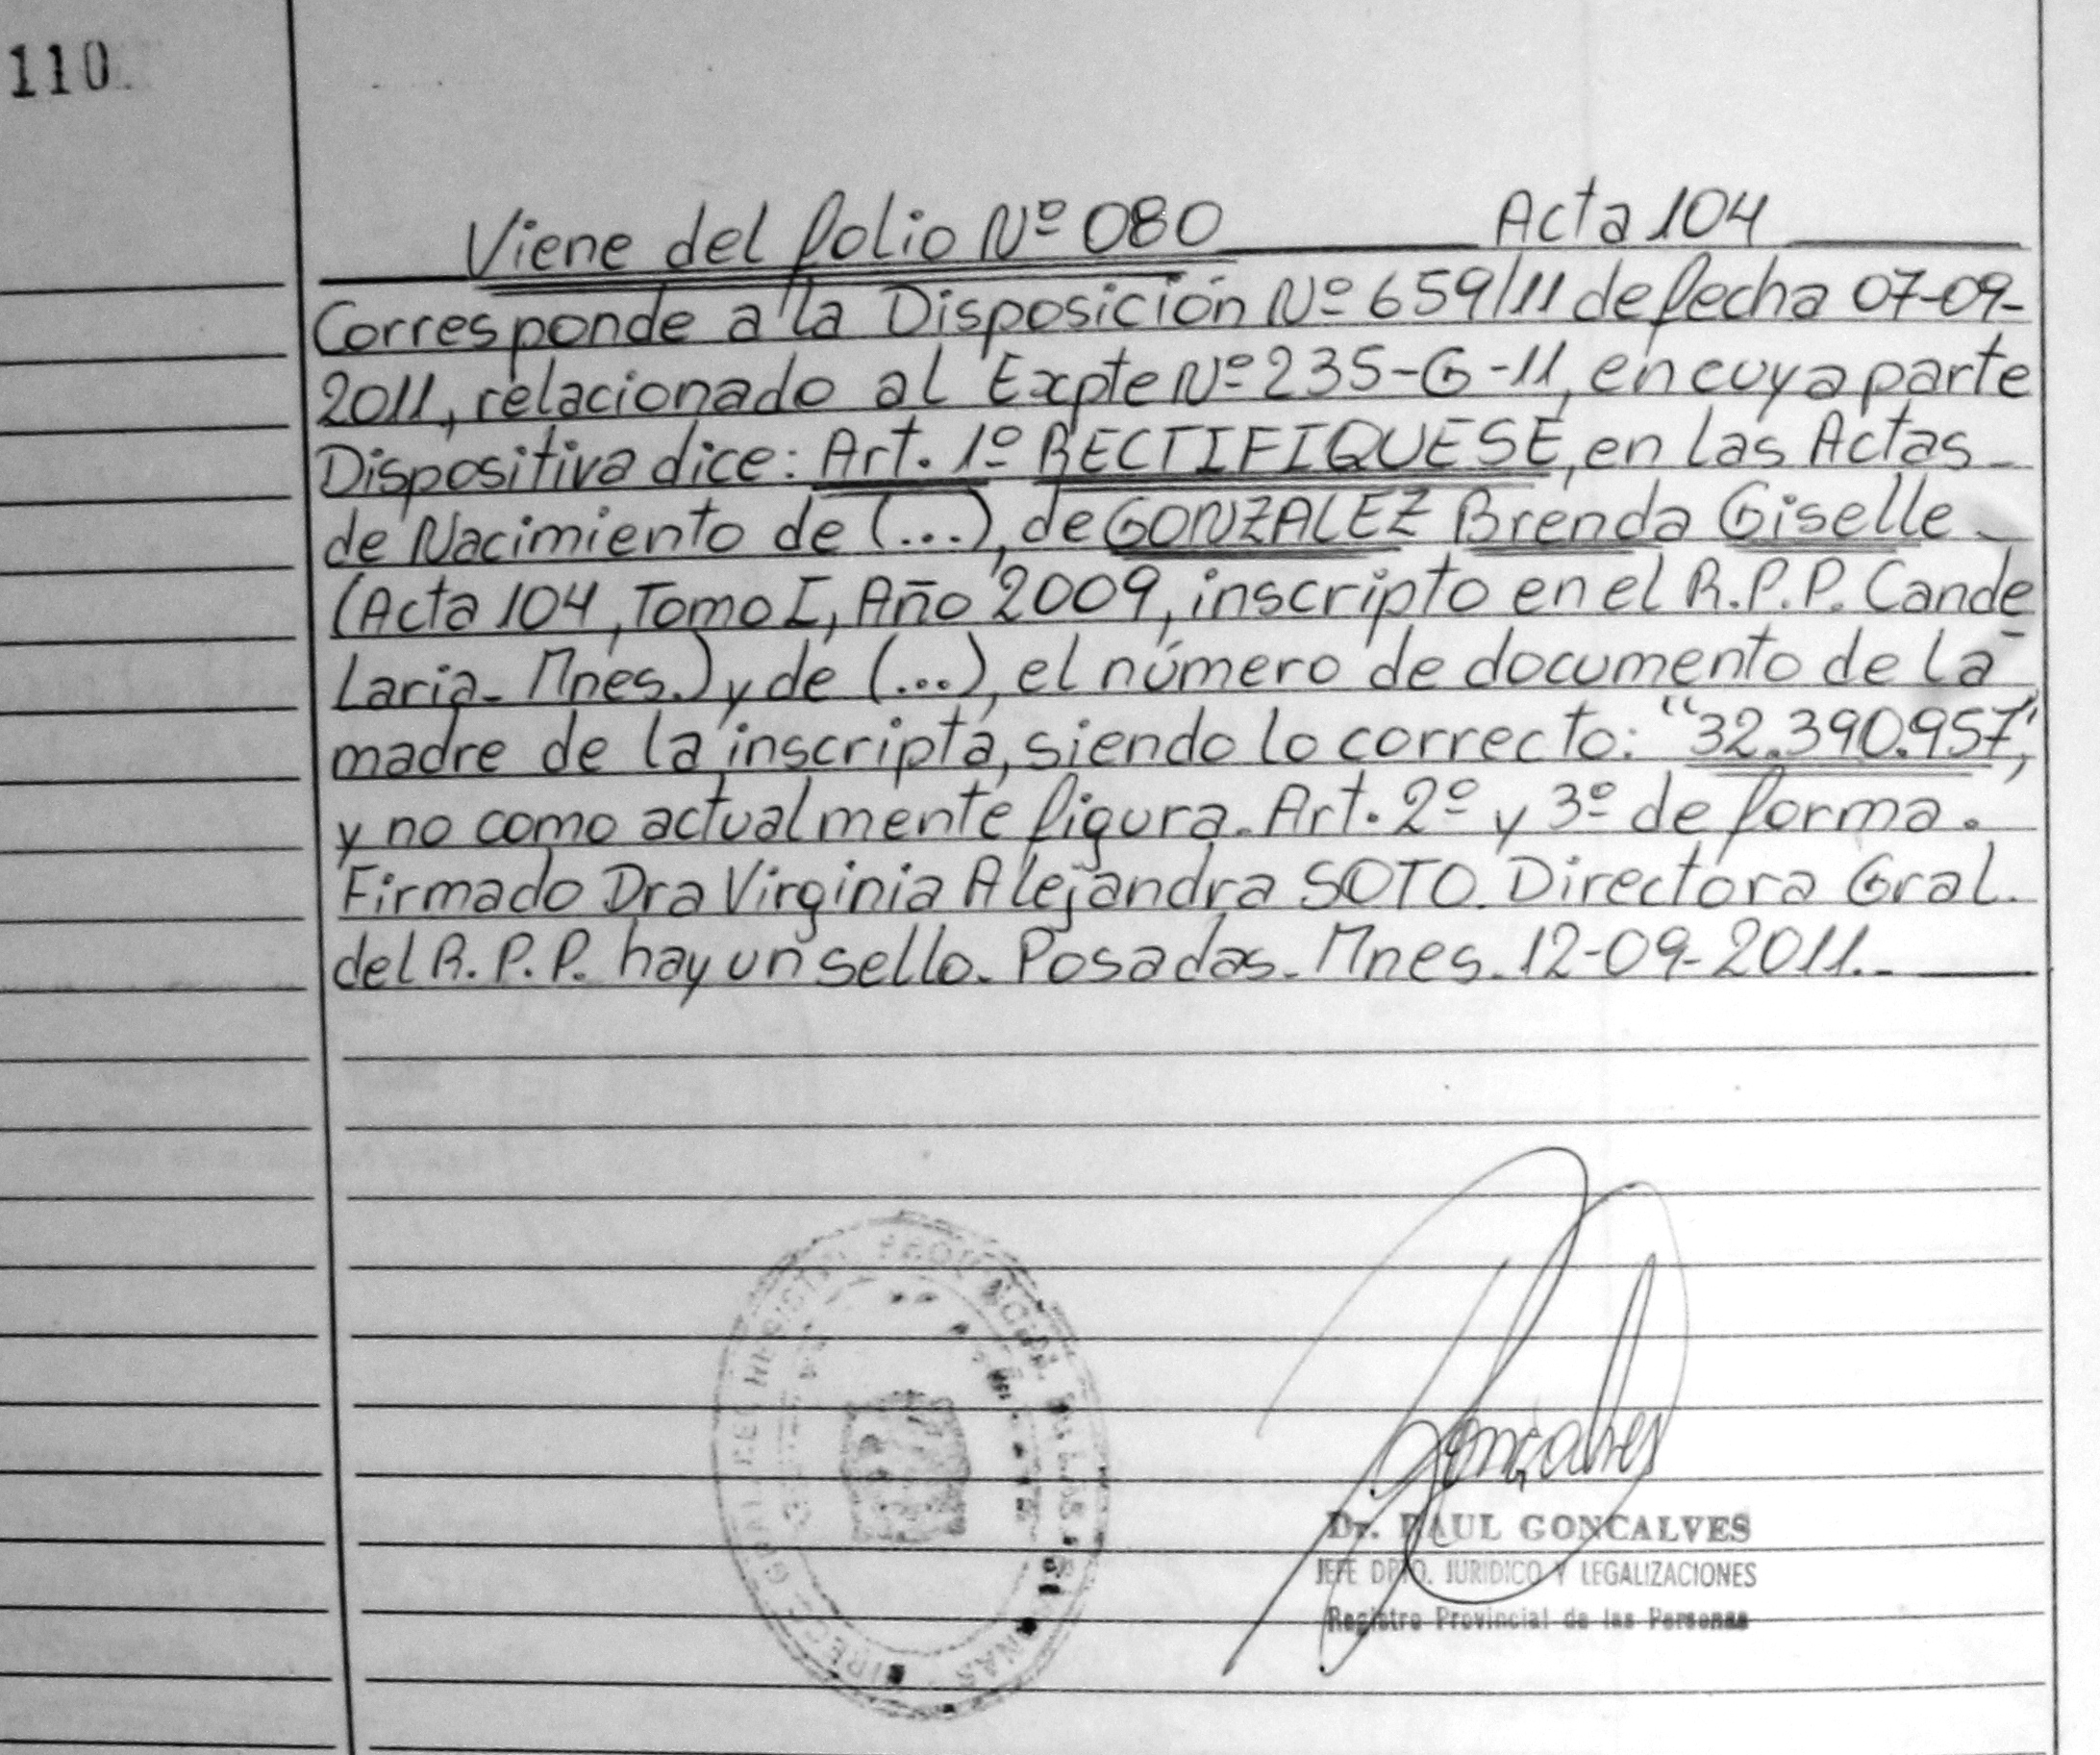 110
Viene del folio Nº 080 Acta 104
Corresponde a la Disposición Nº 659/11 de fecha 07-09-
2011, relacionado al Expte Nº 235-G-11, en cuya parte
Dispositiva dice: Art. 1º RECTIFIQUESE, en las Actas
de Nacimiento de (...), de GONZALEZ Brenda Giselle
(Acta 104, Tomo I, Año 2009, inscripto en el R.P.P. Cande
laria- Mnes.) y de (...), el número de documento de la
madre de la inscripta, siendo lo correcto: "32.390.957",
y no como actualmente figura. Art. 2º y 3º de forma.
Firmado Dra Virginia Alejandra SOTO. Directora Gral.
del R.P.P. hay un sello. Posadas. Mnes. 12-09-2011.-
Goncalves
Dr. RAUL GONCALVES
JEFE DPTO. JURIDICO Y LEGALIZACIONES
Registro Provincial de las Personas